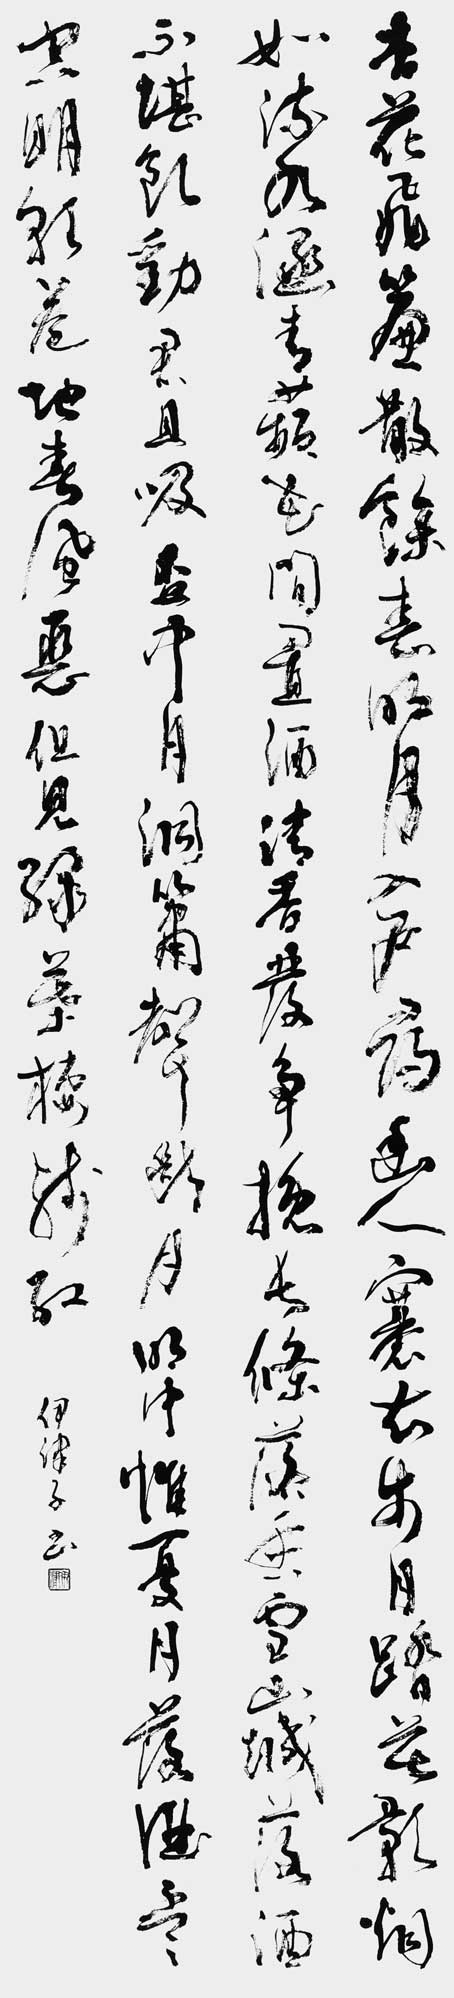 杏花飛簾散餘春明月入戶尋幽人褰衣步月踏花影炯
如流水涵青蘋花間置酒清香發爭挽長條落香雪山城薄酒
不堪飲勸君且吸盃中月洞簫聲斷月明中惟憂月落酒盃
空明朝卷地春風惡但見綠葉棲殘紅
伊津子書